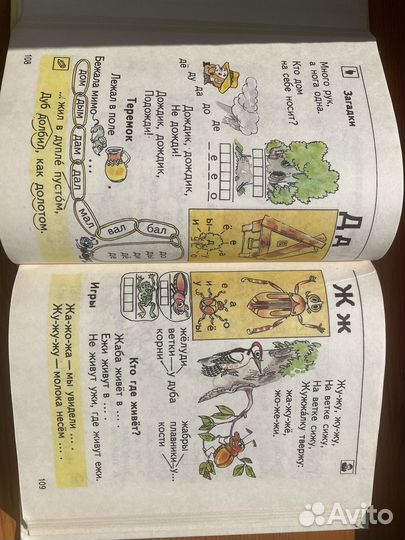 Загадки
Много рук,
а нога одна.
Кто дом
на себе носит?
Д д
дё ду да до де
Дождик, дождик,
Не дожди!
Дождик, дождик,
Подожди!
Теремок
Лежал в поле ...
Бежала мимо ...
дом дым дам дал мал вал бал
... жил в дупле пустом,
Дуб долбил, как долотом.
108
Ж ж
Жу-жу, жу-жу,
На ветке сижу,
На ветке сижу,
Жужжалку твержу:
жа-жу-жё,
жо-же-жи.
жёлуди
ветки — у дуба
корни
жабры
плавники — у...
кости
Кто где живёт?
Жаба живёт в ... .
Ежи живут в ... .
Не живут ужи, где живут ежи.
Игры
Жа-жо-жа — мы увидели ... .
Жу-жу-жу — молока несём ... .
109
Avito